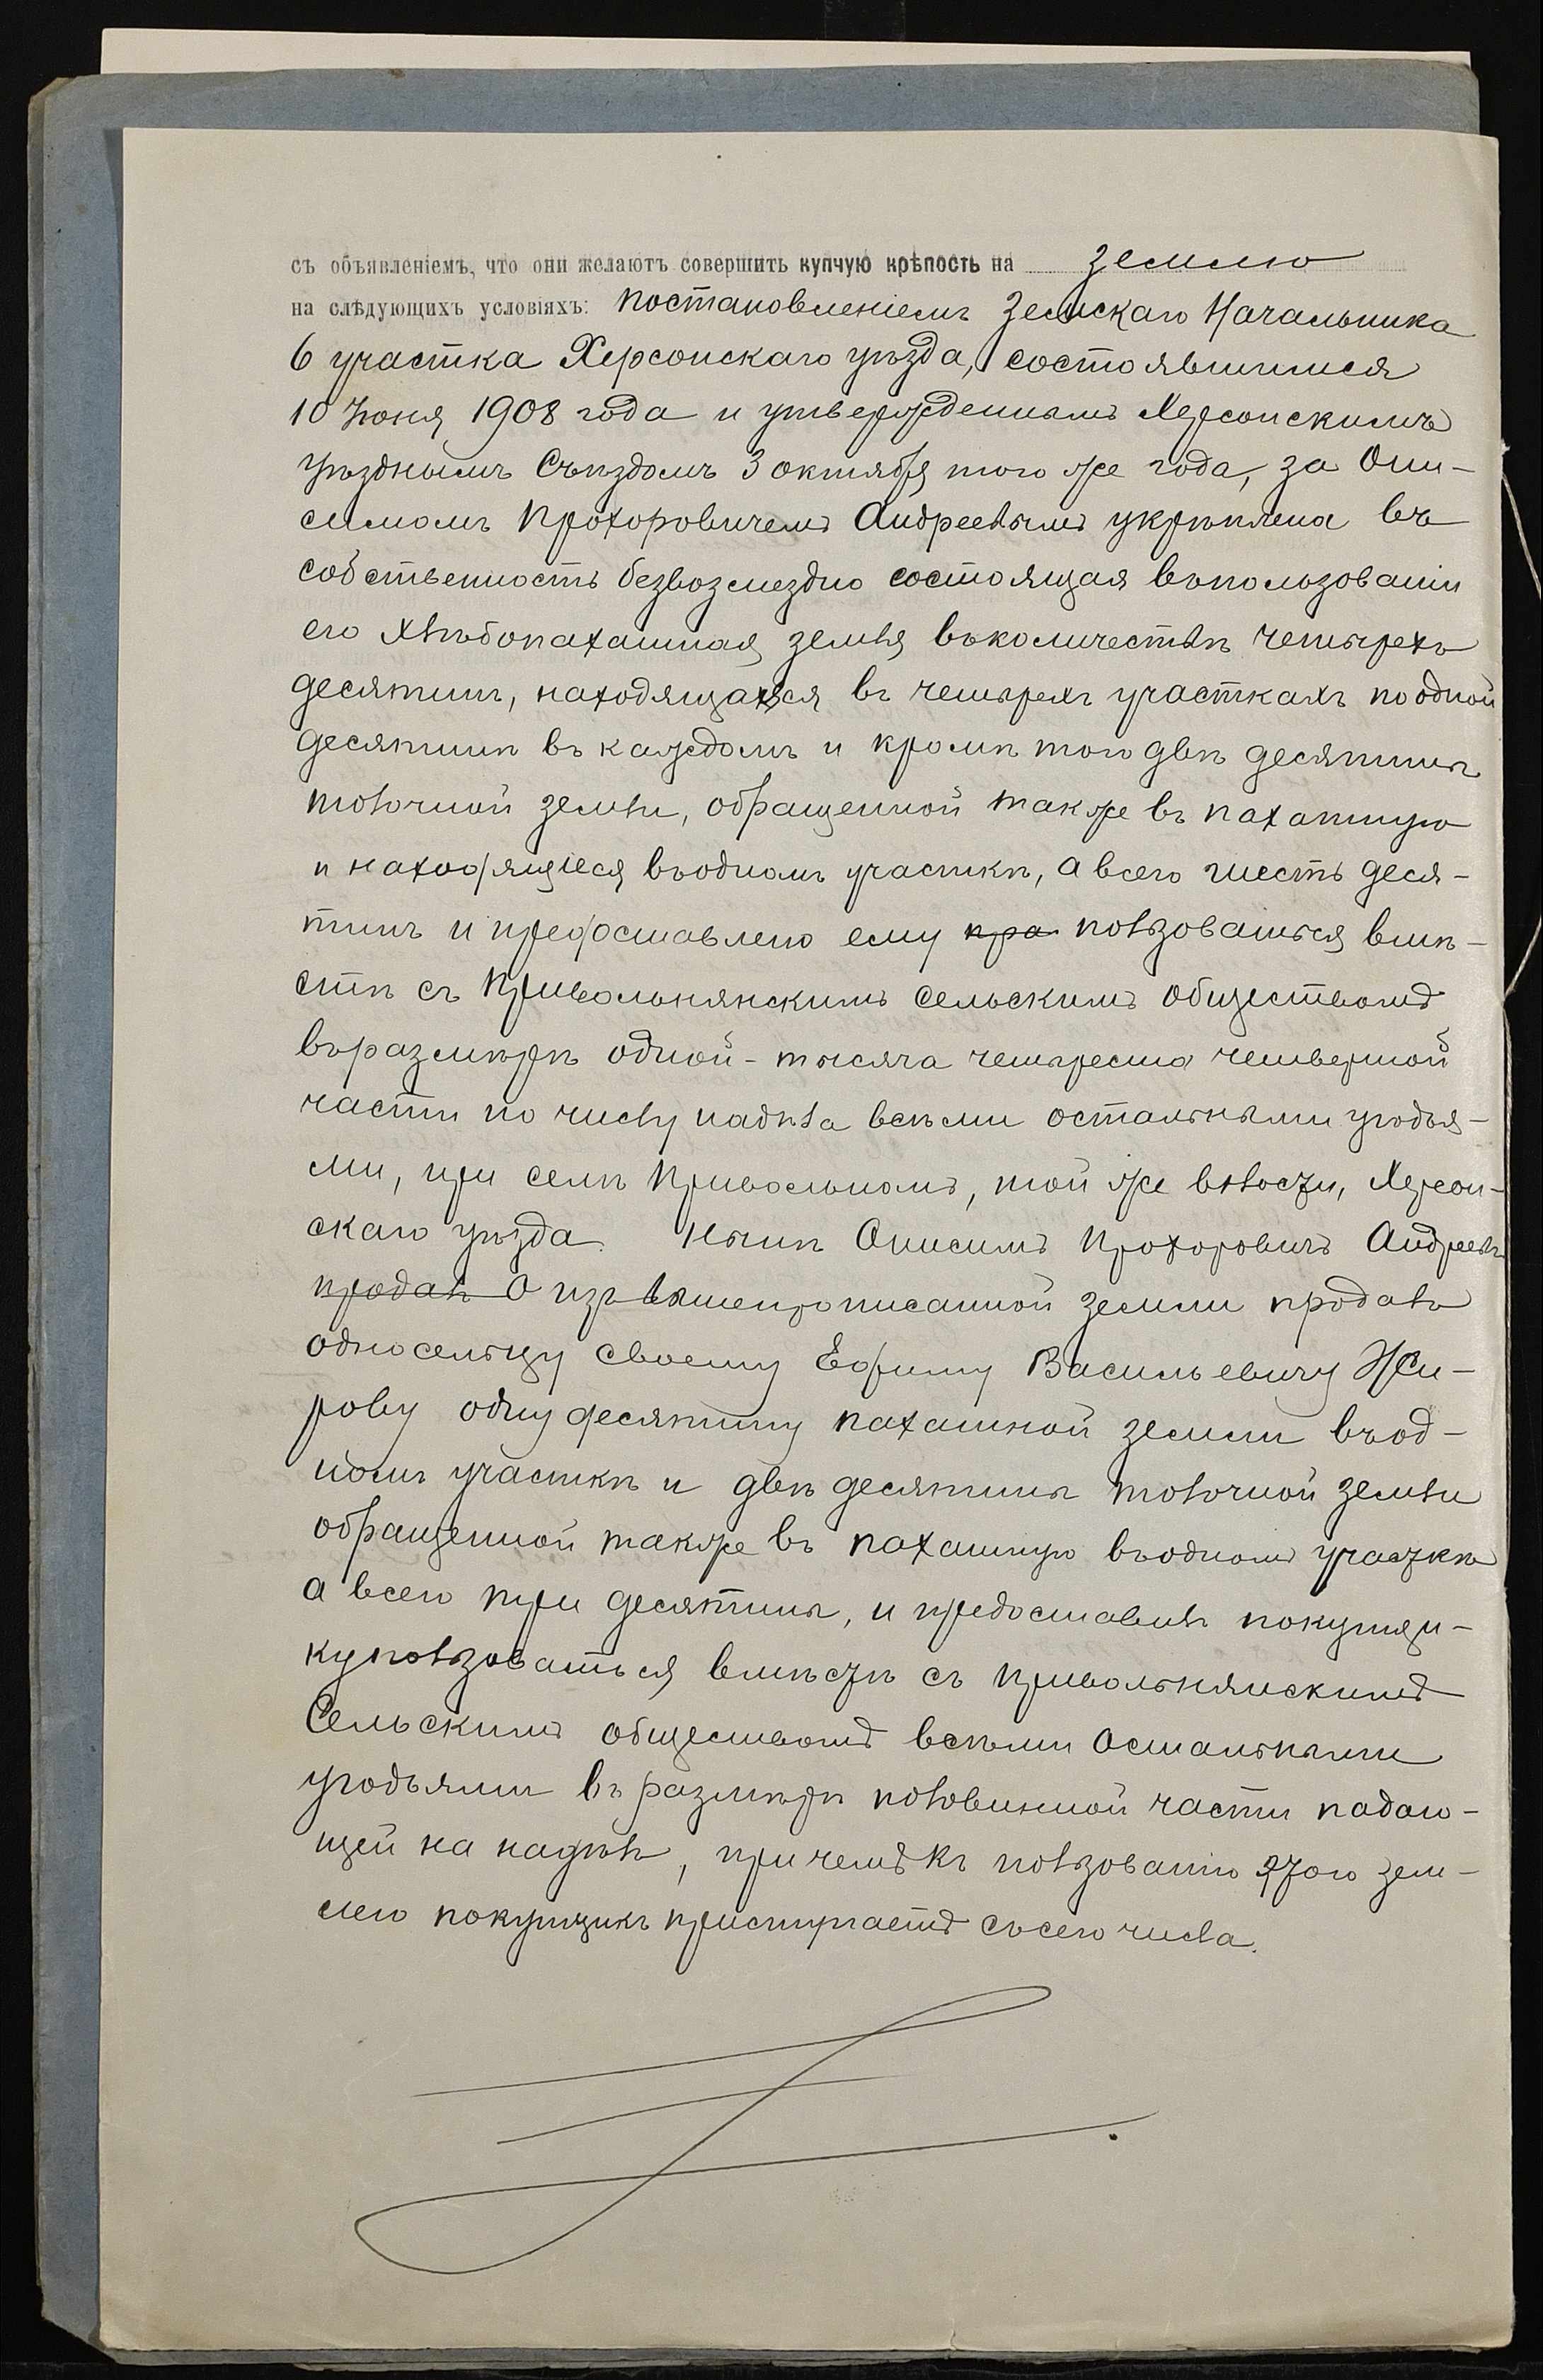 съ объявленіемъ, что они желаютъ совершить купчую крѣпость на землю
на слѣдующихъ условіяхъ: постановленіемъ Земскаго Начальника
6 участка Херсонскаго уѣзда, состоявшимся
10 Іюня 1908 года и утвержденнымъ Херсонскимъ
уѣзднымъ Съѣздомъ 3 октября того же года, за Они-
симомъ Прохоровичемъ Андреевымъ укрѣплена въ
собственность безвозмездно состоящая въ пользованіи
его хлѣбопахатная земля въ количествѣ четырехъ
десятинъ, находящаяся въ четырехъ участкахъ по одной
десятинѣ въ каждомъ и кромѣ того двѣ десятины
толочной земли, обращенной также въ пахатную
и находящіеся въ одномъ участкѣ, а всего шесть деся-
тинъ и предоставлено ему пра пользоваться вмѣ-
стѣ съ Привольнянскимъ сельскимъ обществомъ
въ размѣрѣ одной-тысяча четыреста четвертой
части по числу надѣла всѣми остальными угодья-
ми, при селѣ Привольномъ, той же волости, Херсон-
скаго уѣзда. Нынѣ Онисимъ Прохоровичъ Андреевъ
продалъ О изъ вышепрописанной земли продалъ
односельцу своему Ефиму Васильевичу Жи-
рову одну десятину пахатной земли въ од-
номъ участкѣ и двѣ десятины толочной земли
обращенной также въ пахатную въ одномъ участкѣ
а всего три десятины, и предоставилъ покупщи-
ку пользоваться вмѣстѣ съ Привольнянскимъ
Сельскимъ обществомъ всѣми остальными
угодьями въ размѣрѣ половинной части падаю-
щей на надѣлъ, при чемъ къ пользованію этою зем-
лею покупщикъ приступаетъ съ сего числа.